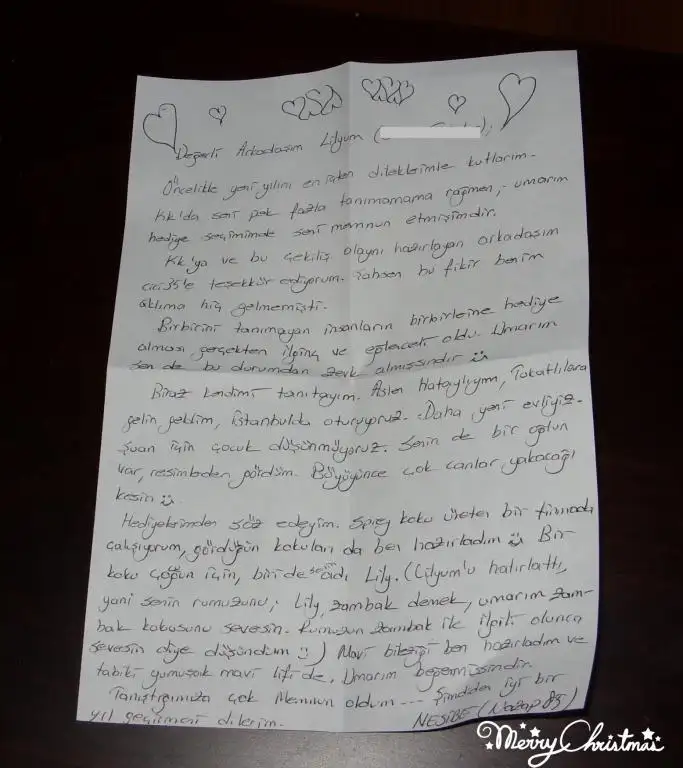 Değerli Arkadaşım Lilyum (
Öncelikle yeni yılını en içten dileklerimle kutlarım.
Kk'da seni pek fazla tanımamama rağmen, umarım
hediye seçimimde seni memnun etmişimdir.
Kk'ya ve bu çekiliş olayını hazırlayan arkadaşım
cici35'e teşekkür ediyorum. Şahsen bu fikir benim
aklıma hiç gelmemişti.
Birbirini tanımayan insanların birbirleine hediye
alması gerçekten ilginç ve eğlenceli oldu. Umarım
sen de bu durumdan zevk almışsındır
Biraz kendimi tanıtayım. Aslen Hataylıyım, Tokatlılara
gelin geldim, İstanbulda oturuyoruz. Daha yeni evliyiz.
Şuan için çocuk düşünmüyoruz. Senin de bir oğlun
var, resimlerden gördüm. Büyüyünce çok canlar yakacağı
kesin
Hediyelerimden söz edeyim. Sprey koku üreten bir firmada
çalışıyorum, gördüğün kokuları da ben hazırladım Bir
koku çoğun için, biri de senin adı Lily. (Lilyum'u hatırlattı,
yani senin rumuzunu; Lily, zambak demek, umarım zam-
bak kokusunu seversin. Rumuzun zambak ile ilgili olunca
seversin diye düşündüm ) Mavi bileziği ben hazırladım ve
tabiki yumuşak mavi lifi de. Umarım beğenmişsindir.
Tanıştığımıza çok memnun oldum --- Şimdiden iyi bir
yıl geçirmeni dilerim. NESİBE (Nazap 89)
Merry Christmas